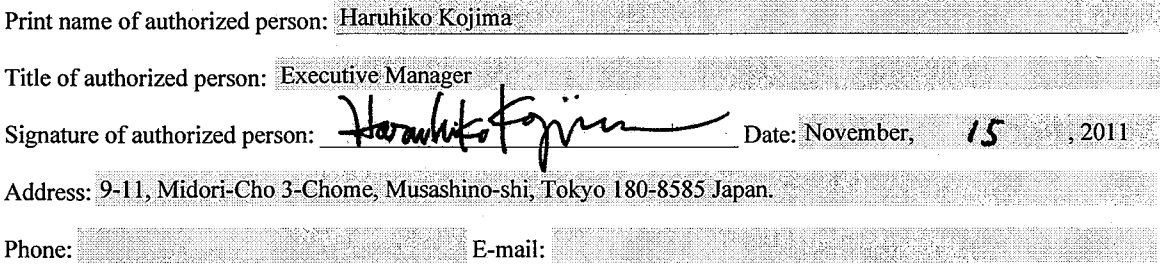 Print name of authorized person: Haruhiko Kojima
Title of authorized person: Executive Manager
Signature of authorized person: Haruhiko Kojima Date: November, 15 , 2011
Address: 9-11, Midori-Cho 3-Chome, Musashino-shi, Tokyo 180-8585 Japan.
Phone: E-mail: